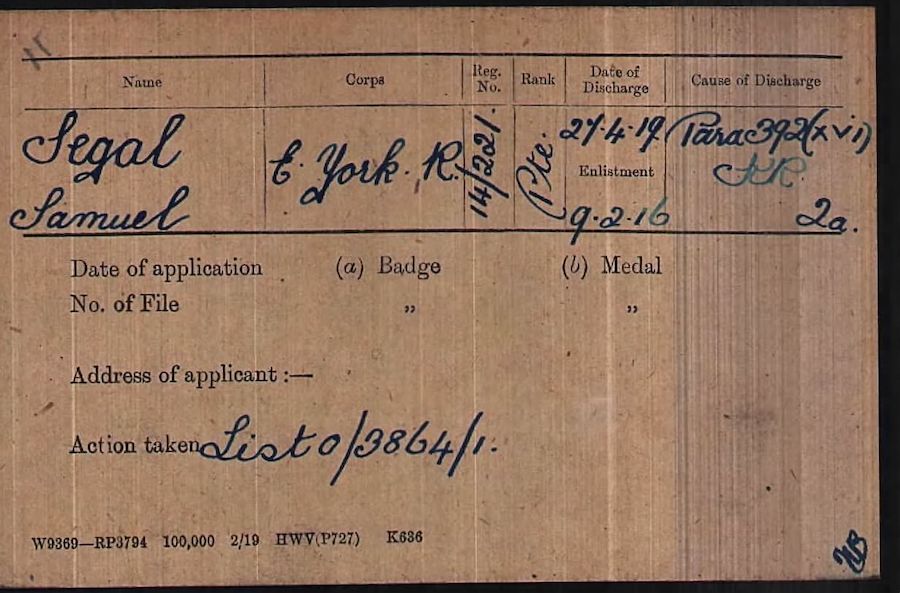 Name Corps Reg. No. Rank Date of Discharge Cause of Discharge
Segal
Samuel
E. York. R.
14/221.
Pte.
27.4.19
Enlistment
9.2.16
Para 392 (xvi)
KR.
2a.
Date of application (a) Badge (b) Medal
No. of File " "
Address of applicant :—
Action taken List 0/3864/1.
W9369—RP3794 100,000 2/19 HWV(P727) K636